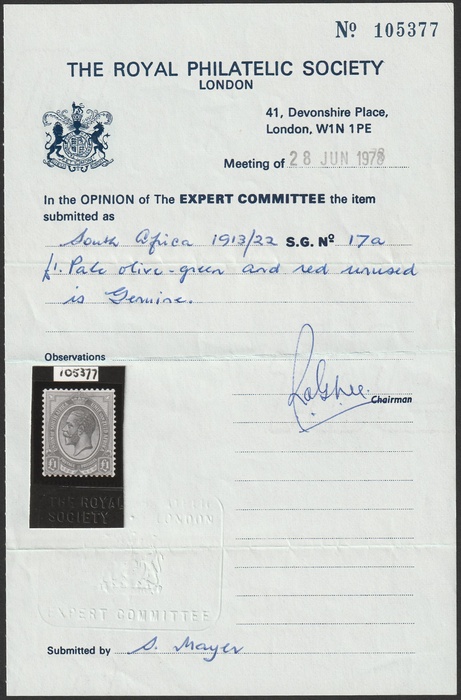 Nº 105377
THE ROYAL PHILATELIC SOCIETY
LONDON
41, Devonshire Place,
London, W1N 1PE
Meeting of 28 JUN 1978
In the OPINION of The EXPERT COMMITTEE the item
submitted as
South Africa 1913/22 S.G. Nº 17a
£1. Pale olive-green and red unused
is Genuine.
Observations
105377
Chairman
£1 £1
THE ROYAL
LONDON
SOCIETY
EXPERT COMMITTEE
Submitted by S. Mayer